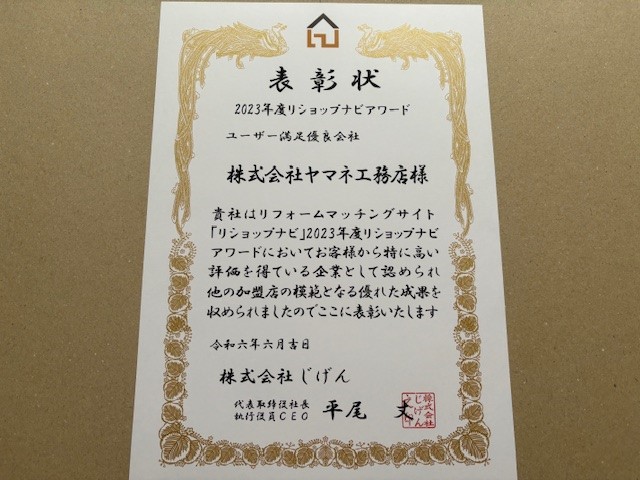 表彰状
2023年度リショップナビアワード
ユーザー満足優良会社
株式会社ヤマネ工務店様
貴社はリフォームマッチングサイト
「リショップナビ」2023年度リショップナビ
アワードにおいてお客様から特に高い
評価を得ている企業として認められ
他の加盟店の模範となる優れた成果を
収められましたのでここに表彰いたします
令和六年六月吉日
株式会社じげん
代表取締役社長
執行役員CEO
平尾 丈
株式会社
じげん